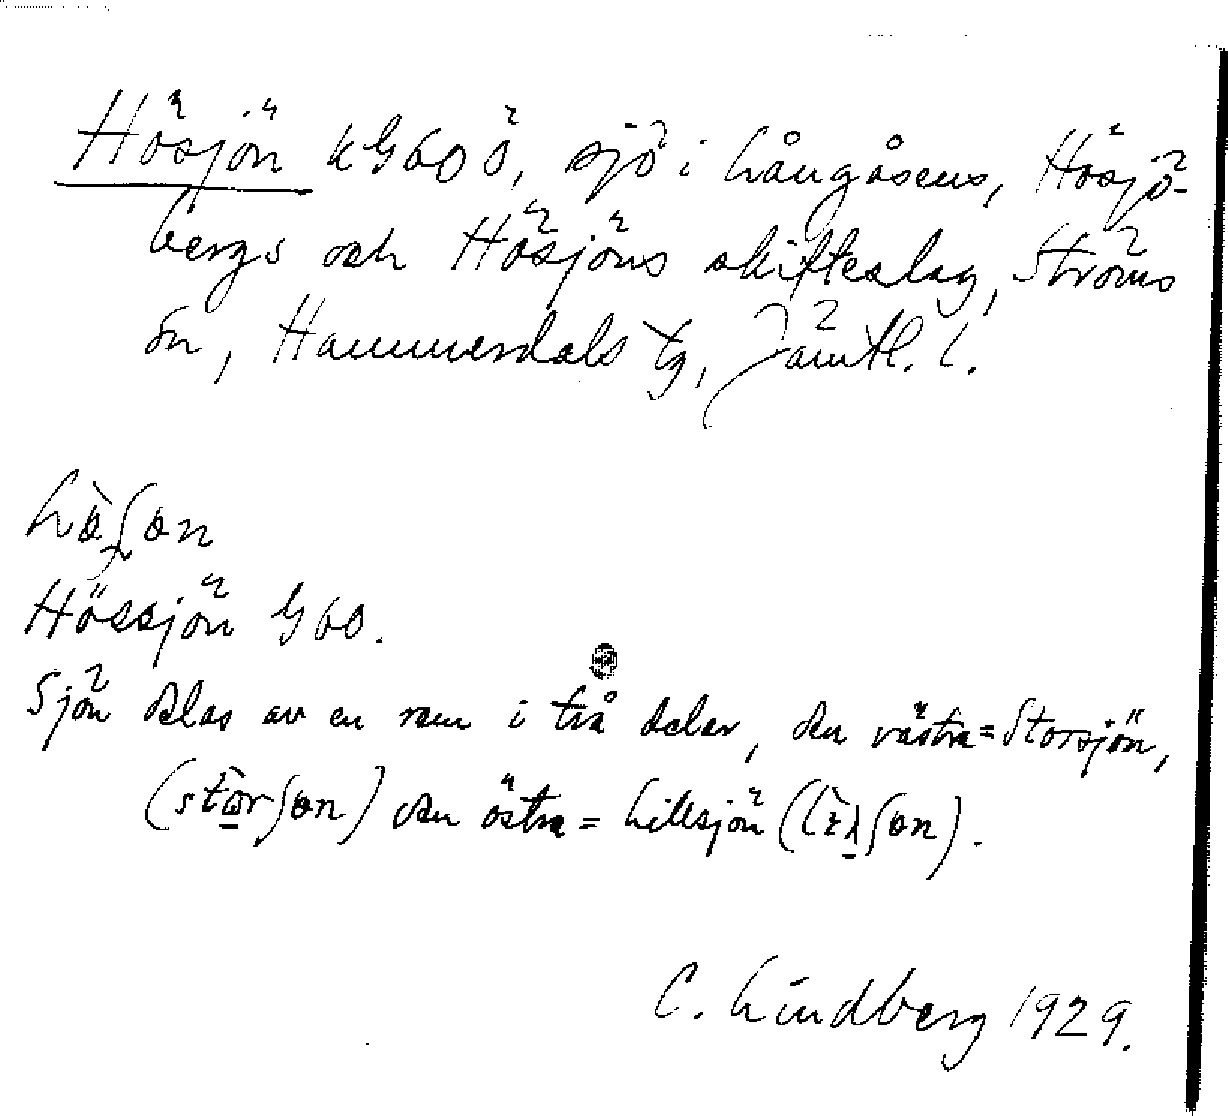 Hösjön kG60 ö, sjö i Långåsens, Hösjö-
bergs och Hösjöns skifteslag, Ströms
sn, Hammerdals tg, Jämtl. l.
Hössjön G60.
Sjön delas av en ... i två delar, den västra = Storsjön,
den östra = Lillsjön
C. Lindberg 1929.